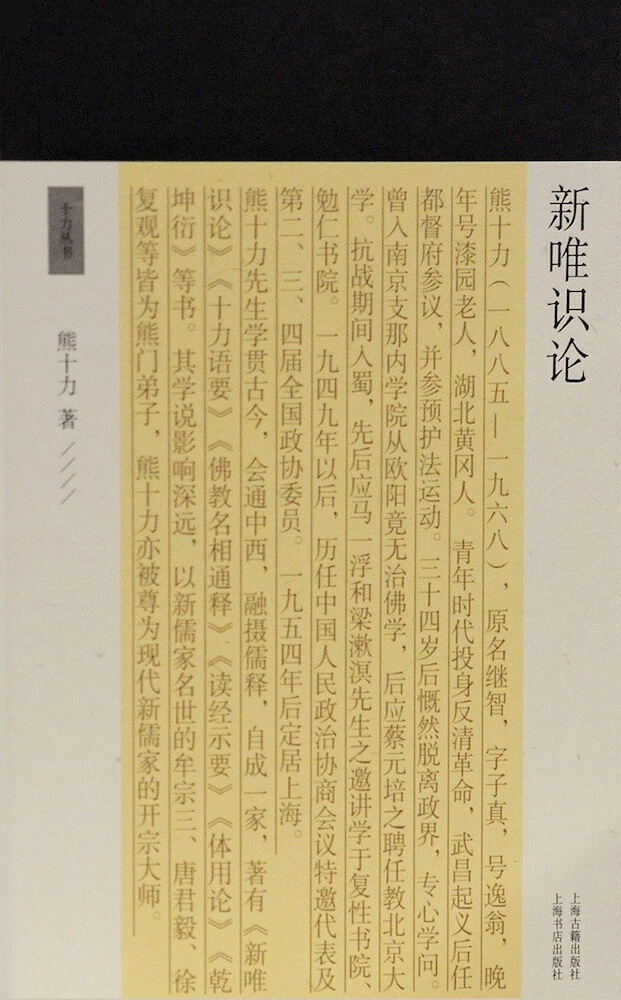 新唯识论
上海古籍出版社
上海书店出版社
熊十力（一八八五—一九六八），原名继智，字子真，号逸翁，晚
年号漆园老人，湖北黄冈人。青年时代投身反清革命，武昌起义后任
都督府参议，并参预护法运动。三十四岁后慨然脱离政界，专心学问。
曾入南京支那内学院从欧阳竟无治佛学，后应蔡元培之聘任教北京大
学。抗战期间入蜀，先后应马一浮和梁漱溟先生之邀讲学于复性书院、
勉仁书院。一九四九年以后，历任中国人民政治协商会议特邀代表及
第二、三、四届全国政协委员。一九五四年后定居上海。
熊十力先生学贯古今，会通中西，融摄儒释，自成一家，著有《新唯
识论》《十力语要》《佛教名相通释》《读经示要》《体用论》《乾
坤衍》等书。其学说影响深远，以新儒家名世的牟宗三、唐君毅、徐
复观等皆为熊门弟子，熊十力亦被尊为现代新儒家的开宗大师。
十力丛书
熊十力 著////